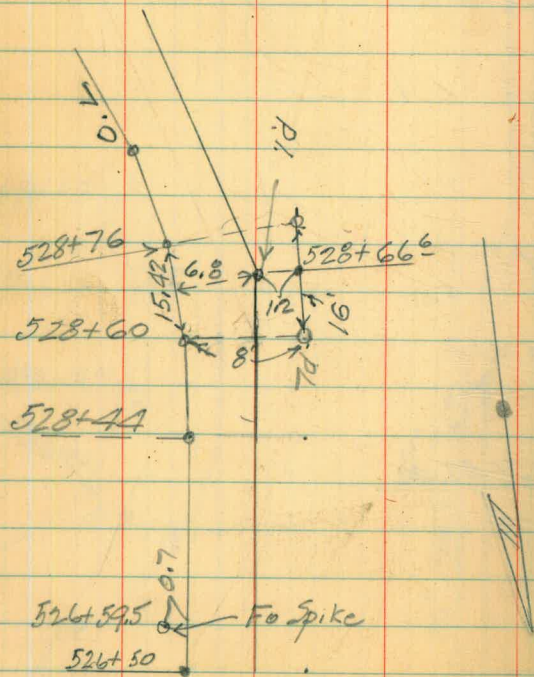 0.7
P.I.
528+76
528+66⁶
15.42
6.8
12
16'
528+60
8'
528+44
0.7
526+59.5
Fo Spike
526+50